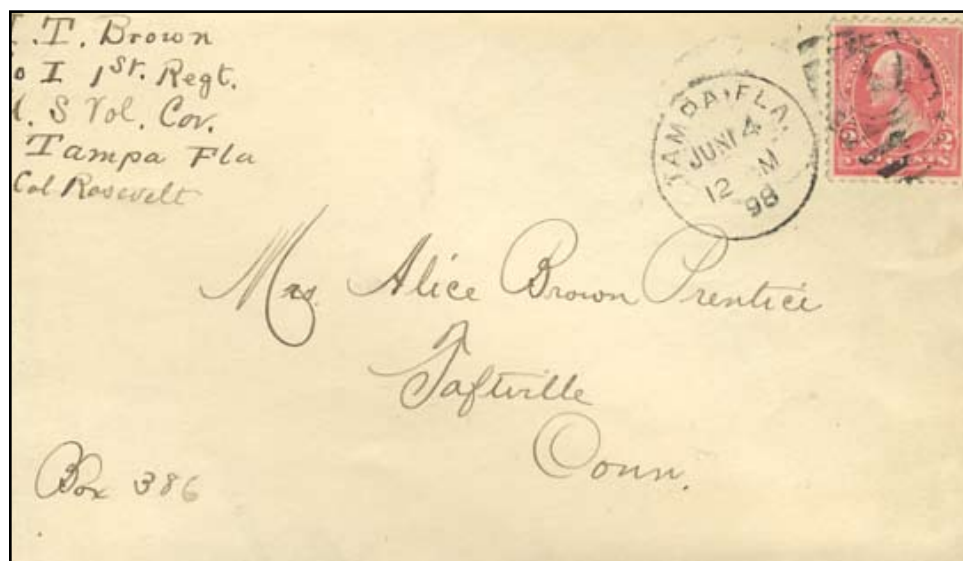 . T. Brown
o I 1st. Regt.
. S Vol. Cav.
Tampa Fla
Col Rosevelt
TAMPA, FLA.
JUN 14
12 M
98
2 2
Mrs Alice Brown Prentice
Taftville
Conn.
Box 386